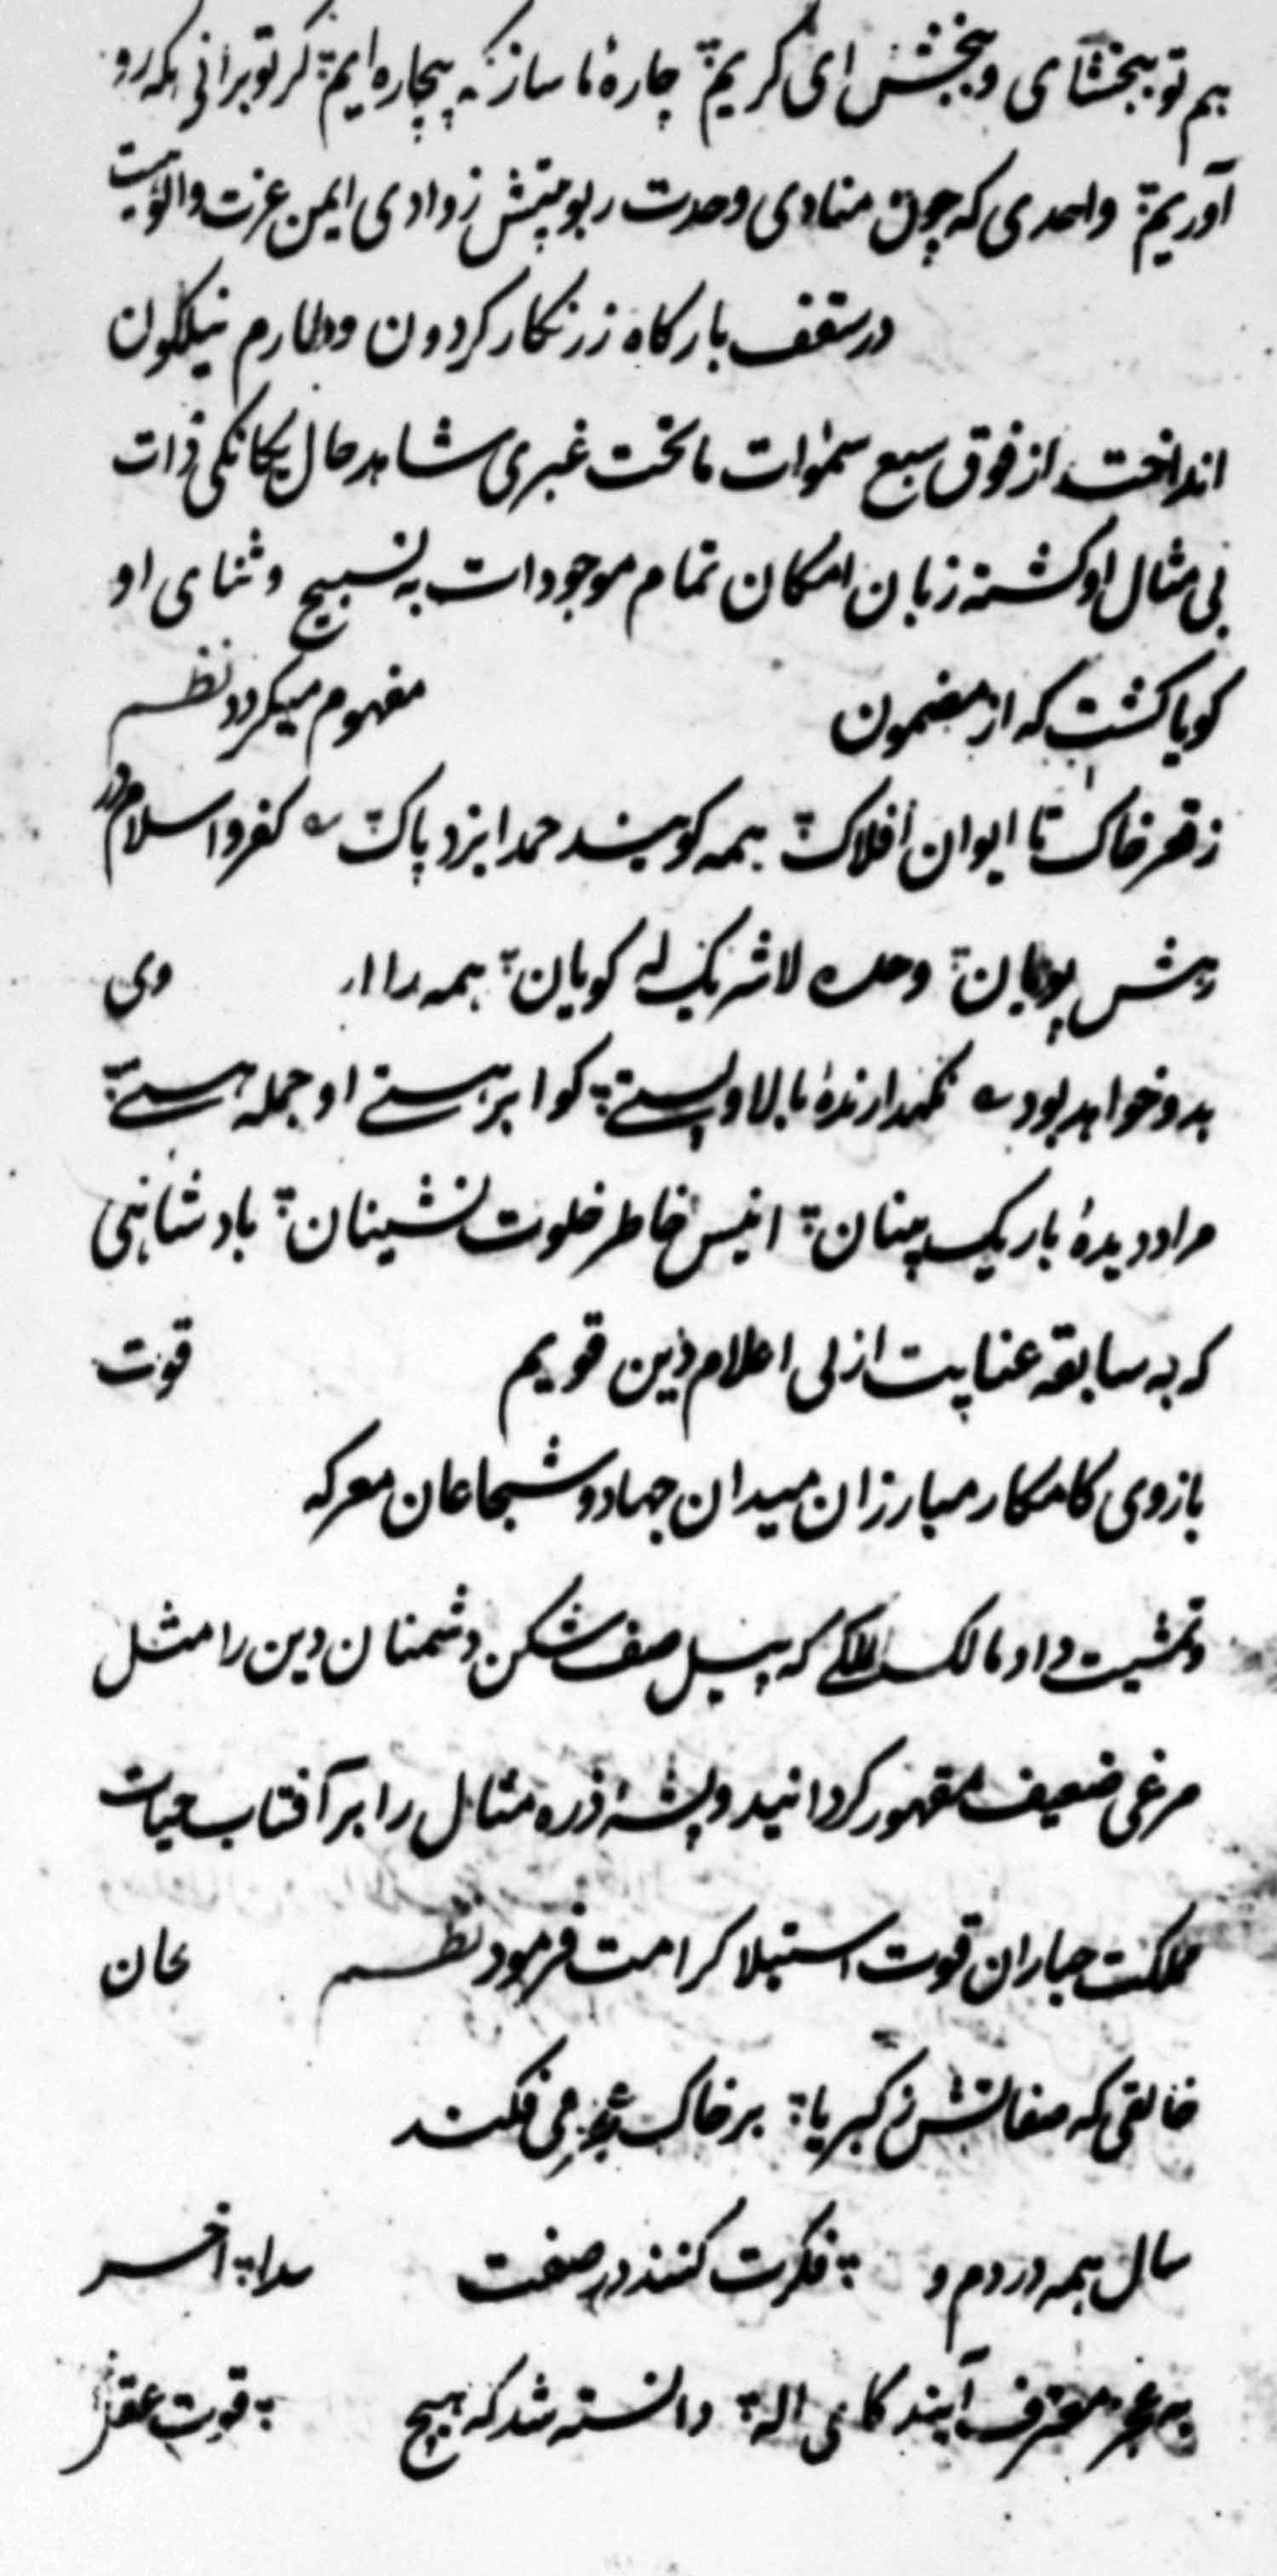 هم تو ببخشای و ببخش ای کریم ؞ چارهٔ ما ساز که بیچاره ایم ؞ کر تو برانی بکه رو
آوریم ؞ واحدی که چون منادی وحدت ربوبیتش ز وادی ایمن عزت والوهیت
در سقف بارکاه زرنکار کردون و طارم نیلکون
انداخت از فوق سبع سموات تا تحت غبری شاهد حال یکانکی ذات
بی مثال او کشته زبان امکان تمام موجودات به تسبیح و ثنای او
کویا کشت که از مضمون مفهوم میکردد نظم
ز قعر خاک تا ایوان افلاک ؞ همه کویند حمد ایزد پاک کفر و اسلام در
رهش پویان ؞ وحده لاشریک له کویان ؞ همه را از وی
بدو خواهد بود نکهدارندهٔ بالا و پستی ؞ کوا بر هستی او جمله هستی ؞
مراد دیدهٔ باریک بینان ؞ انیس خاطر خلوت نشینان ؞ بادشاهی
که به سابقه عنایت ازلی اعلام دین قویم قوت
بازوی کامکار مبارزان میدان جهاد و شجاعان معرکه
و تمشیت داد مالک الملکی که پیل صف شکن دشمنان دین را مثل
مرغی ضعیف مقهور کردانید و پشهٔ ذره مثال را بر آفتاب حیات
مملکت جباران قوت استیلا کرامت فرمود نظم
خالقی که صفاتش ز کبریا ؞ بر خاک عجز می فکند
سال همه در دم و ؞ فکرت کنند در صفت اخر
به عجز معترف آیند کای اله ؞ دانسته شد که هیچ ؞ قوت عقل